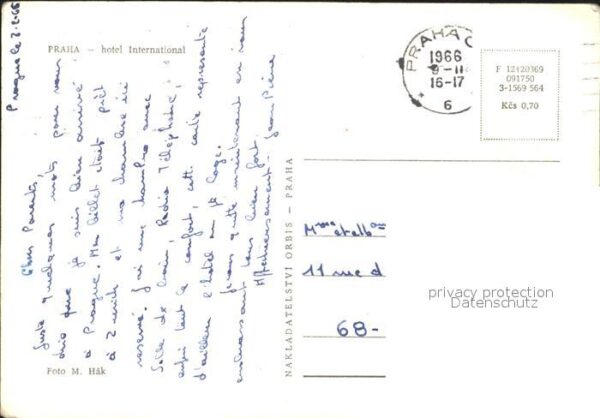 PRAHA — hotel International
Prague le 2-2-66
Chers Parents,
Juste quelques mots pour vous
dire que je suis bien arrivé
à Prague. Mon billet était prêt
à Zurich et ma chambre ici
reservé. J'ai une chambre avec
Salle de bain, Radio Téléphone,
enfin tout le confort, cette carte represente
d'ailleurs l'hotel où je loge.
Je vous quitte maintenant en vous
embrassant tous bien fort.
Affectueusement. Jean Pierre
Foto M. Hák
NAKLADATELSTVÍ ORBIS — PRAHA
PRAHA
1966
9-11
16-17
6
F 12†20369
091750
3-1569 564
Kčs 0,70
Mme et
11 rue d
68-
privacy protection
Datenschutz